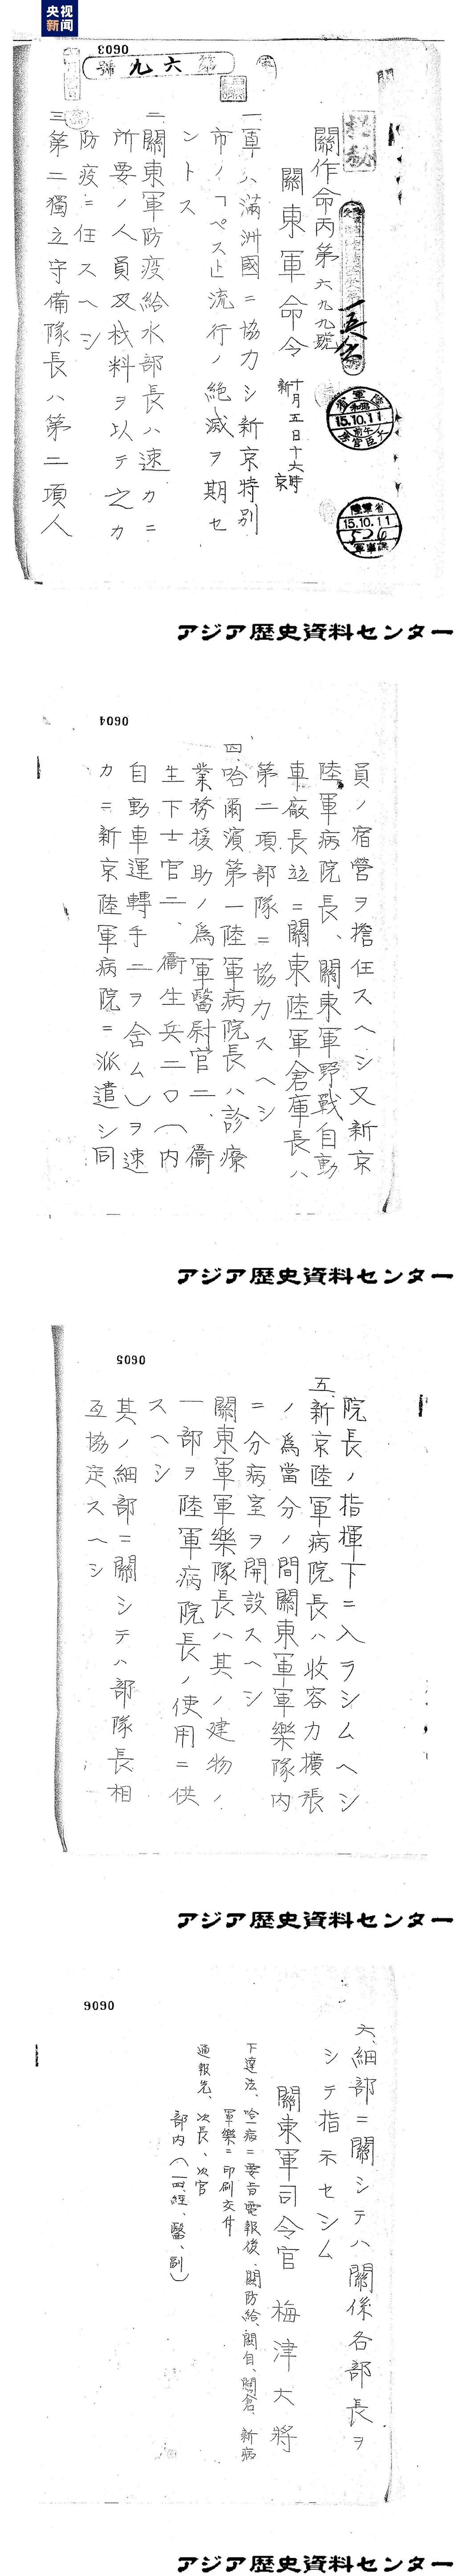 央视
新闻
0603
第六九號
關
極秘
關作命丙第六九九號
關東軍命令
十月五日十六時
新京
一、軍ハ滿洲國ニ協力シ新京特別
市ノ「ペスト」流行ノ絶滅ヲ期セ
ントス
二、關東軍防疫給水部長ハ速カニ
所要ノ人員及材料ヲ以テ之カ
防疫ニ任スヘシ
三、第二獨立守備隊長ハ第二項人
15.10.11
陸軍省
15.10.11
軍事課
アジア歴史資料センター
0604
員ノ宿營ヲ擔任スヘシ又新京
陸軍病院長、關東軍野戰自動
車廠長竝ニ關東陸軍倉庫長ハ
第二項部隊ニ協力スヘシ
四、哈爾濱第一陸軍病院長ハ診療
業務援助ノ爲軍醫尉官二、衞
生下士官二、衞生兵二〇(内
自動車運轉手二ヲ含ム)ヲ速
カニ新京陸軍病院ニ派遣シ同
アジア歴史資料センター
0605
院長ノ指揮下ニ入ラシムヘシ
五、新京陸軍病院長ハ收容力擴張
ノ爲當分ノ間關東軍軍樂隊内
ニ分病室ヲ開設スヘシ
關東軍軍樂隊長ハ其ノ建物ノ
一部ヲ陸軍病院長ノ使用ニ供
スヘシ
其ノ細部ニ關シテハ部隊長相
互協定スヘシ
アジア歴史資料センター
0606
六、細部ニ關シテハ關係各部長ヲ
シテ指示セシム
關東軍司令官 梅津大將
下達法、哈一病ニ要旨電報後、關防給、關自、關倉、新病
軍樂ニ印刷交付
通報先、次長、次官
部内(一、四、經、醫、副)
アジア歴史資料センター